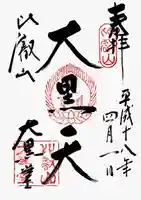 奉拝
平成十八年
四月一日
大黒天
比叡山
大黒堂